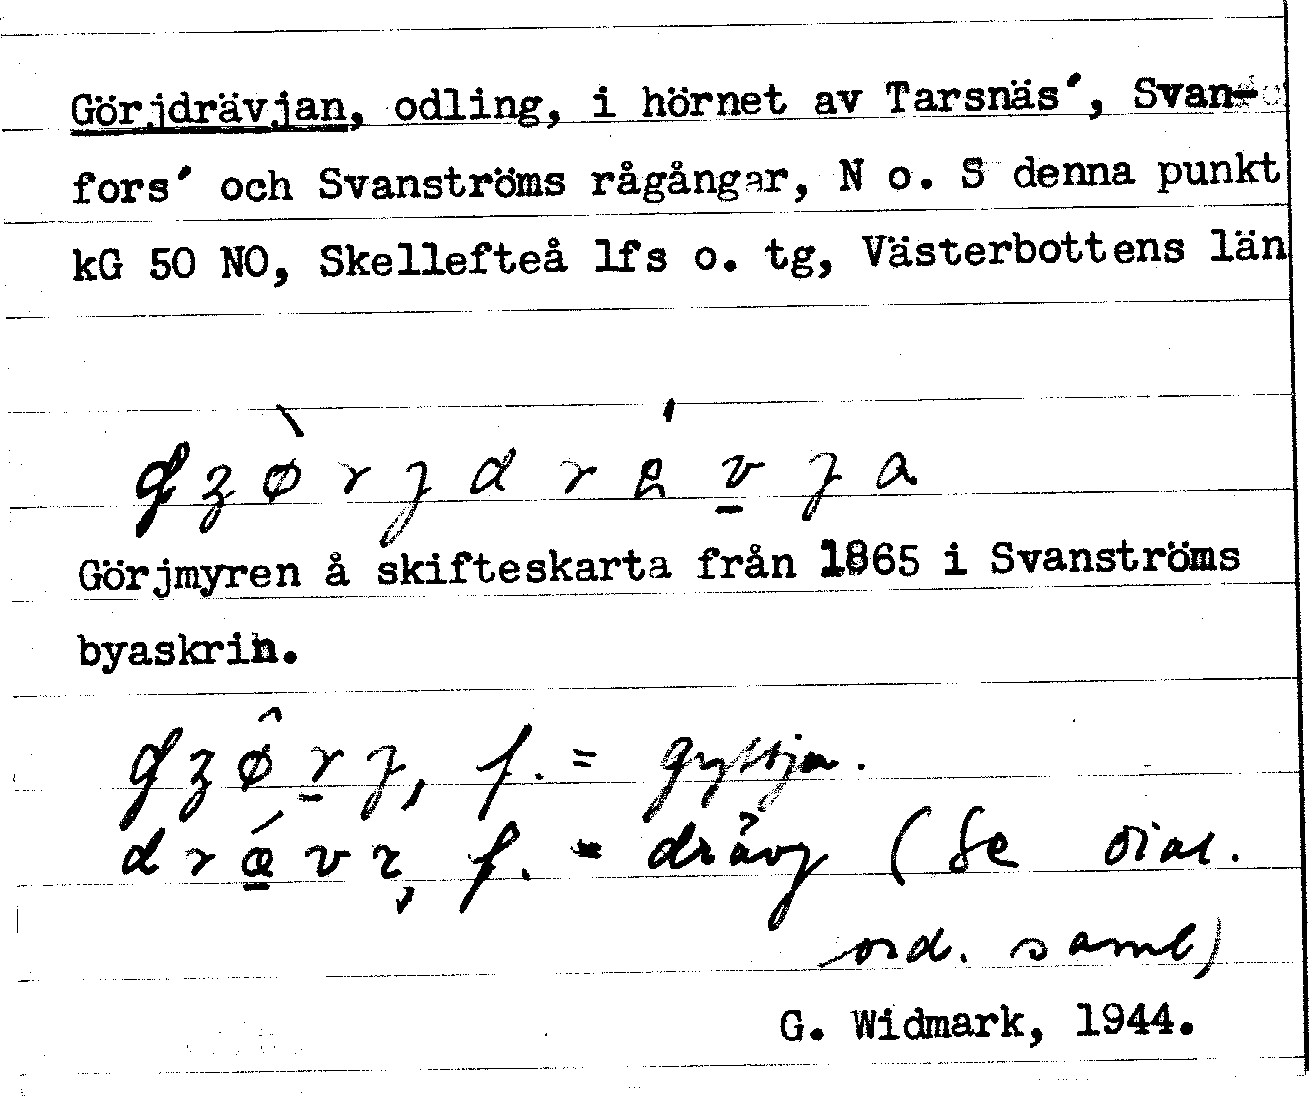 Görjdrävjan, odling, i hörnet av Tarsnäs', Svan-
fors' och Svanströms rågångar, N o. S denna punkt
kG 50 NO, Skellefteå lfs o. tg, Västerbottens län
Görjmyren å skifteskarta från 1865 i Svanströms
byaskrin.
f. = gyttja.
f. = drävj (Se dial.
ord. saml)
G. Widmark, 1944.